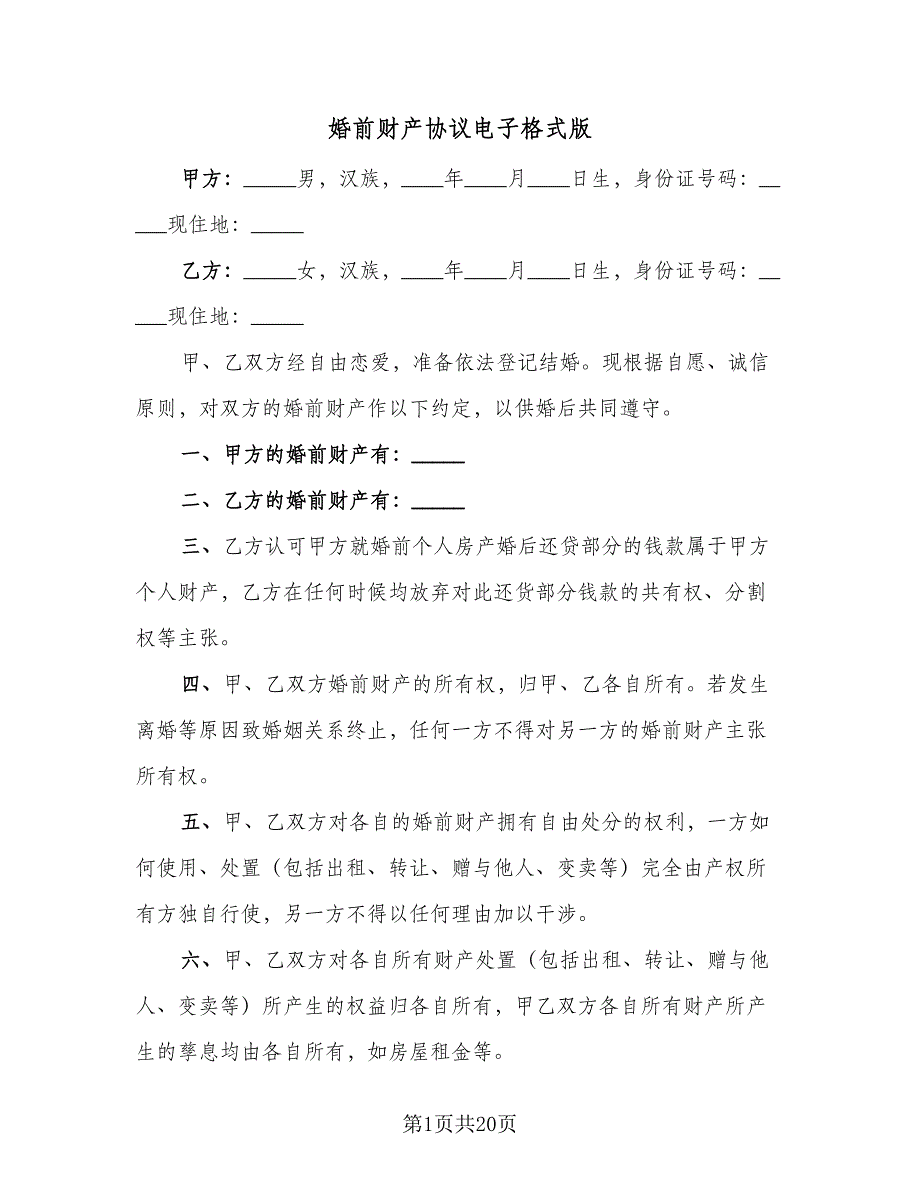 婚前财产协议电子格式版
甲方：_____男，汉族，____年____月____日生，身份证号码：__
___现住地：_____
乙方：_____女，汉族，____年____月____日生，身份证号码：__
___现住地：_____
甲、乙双方经自由恋爱，准备依法登记结婚。现根据自愿、诚信
原则，对双方的婚前财产作以下约定，以供婚后共同遵守。
一、甲方的婚前财产有：_____
二、乙方的婚前财产有：_____
三、乙方认可甲方就婚前个人房产婚后还贷部分的钱款属于甲方
个人财产，乙方在任何时候均放弃对此还货部分钱款的共有权、分割
权等主张。
四、甲、乙双方婚前财产的所有权，归甲、乙各自所有。若发生
离婚等原因致婚姻关系终止，任何一方不得对另一方的婚前财产主张
所有权。
五、甲、乙双方对各自的婚前财产拥有自由处分的权利，一方如
何使用、处置（包括出租、转让、赠与他人、变卖等）完全由产权所
有方独自行使，另一方不得以任何理由加以干涉。
六、甲、乙双方对各自所有财产处置（包括出租、转让、赠与他
人、变卖等）所产生的权益归各自所有，甲乙双方各自所有财产所产
生的孳息均由各自所有，如房屋租金等。
第1页共20页